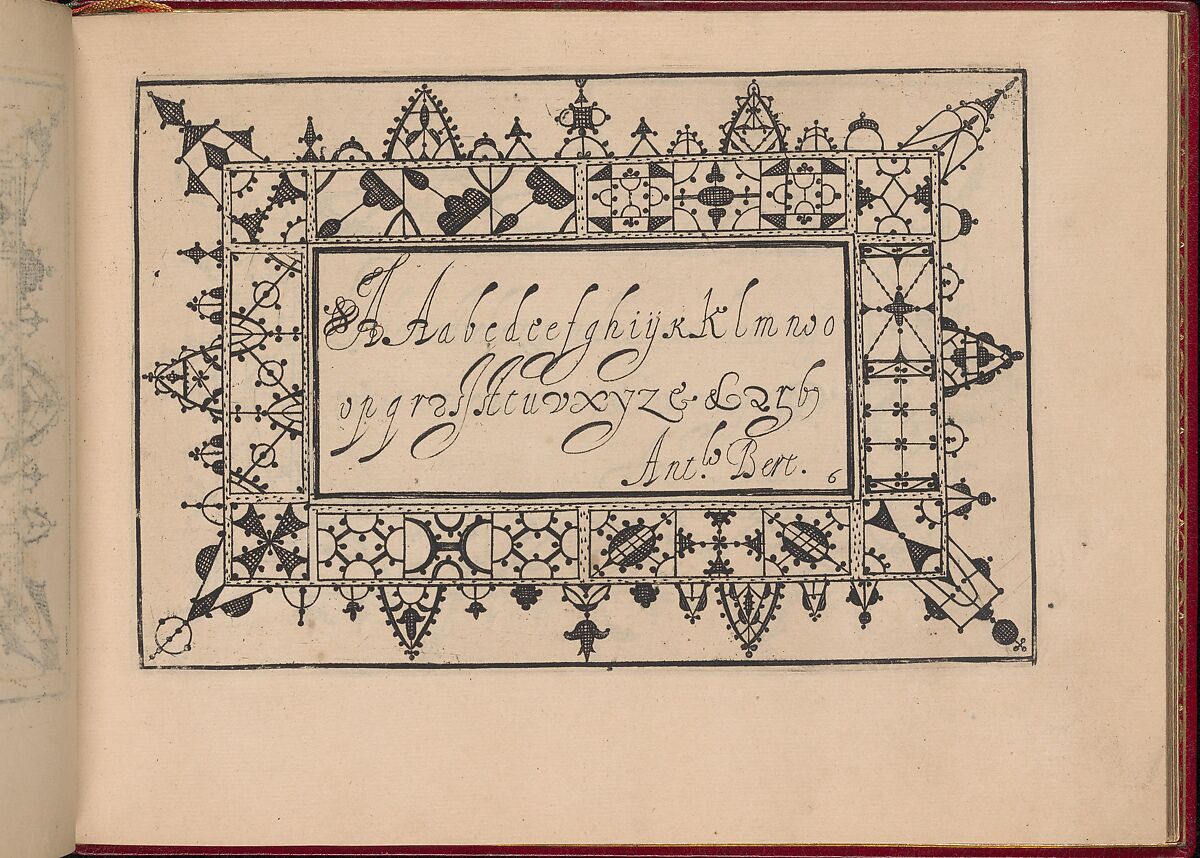 A A a b c d e e f g h i ÿ k k l m n o o
o p q r ſſ ſt t u v x y z & & 
Ant.º Bert. 6